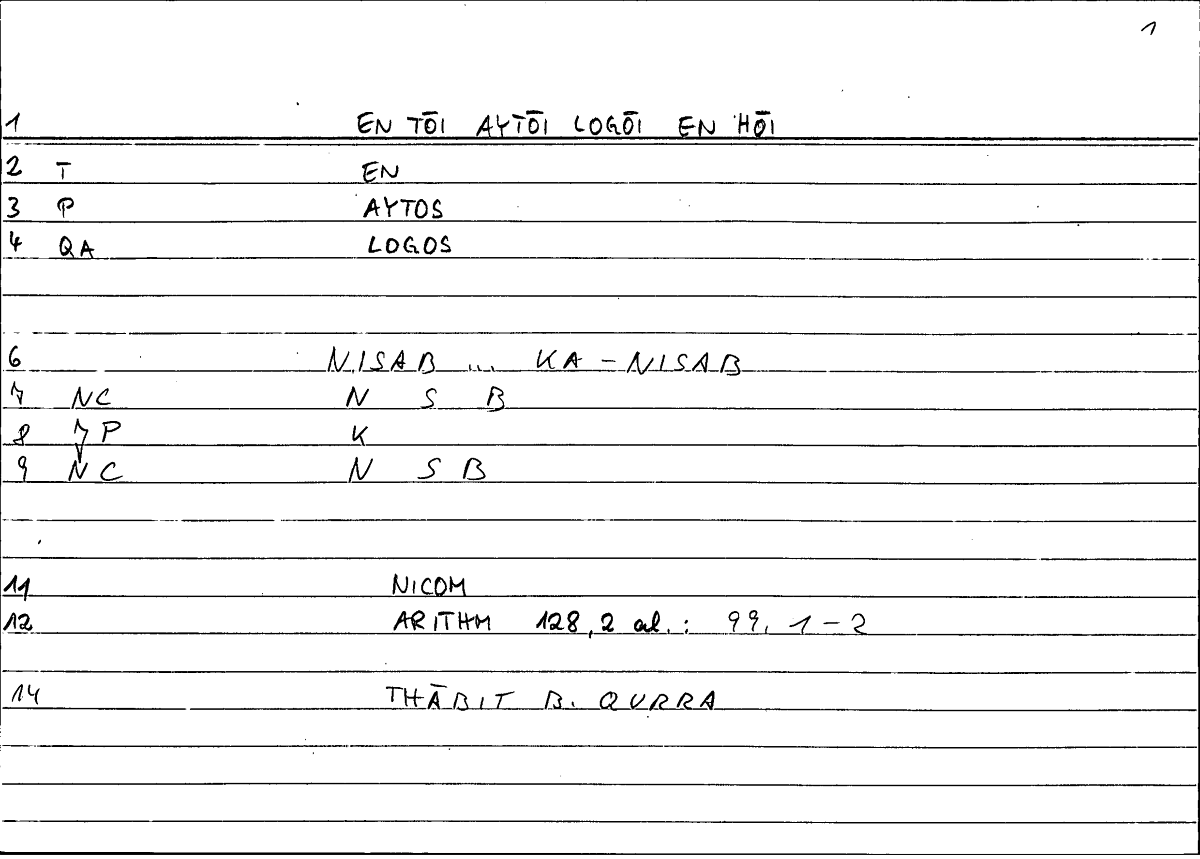 1
1 EN TŌI AYTŌI LOGŌI EN HŌI
2 T EN
3 P AYTOS
4 QA LOGOS
6 NISAB ... KA-NISAB
7 NC N S B
8 P K
9 NC N S B
11 NICOM
12 ARITHM 128,2 al.: 99, 1-2
14 THĀBIT B. QURRA